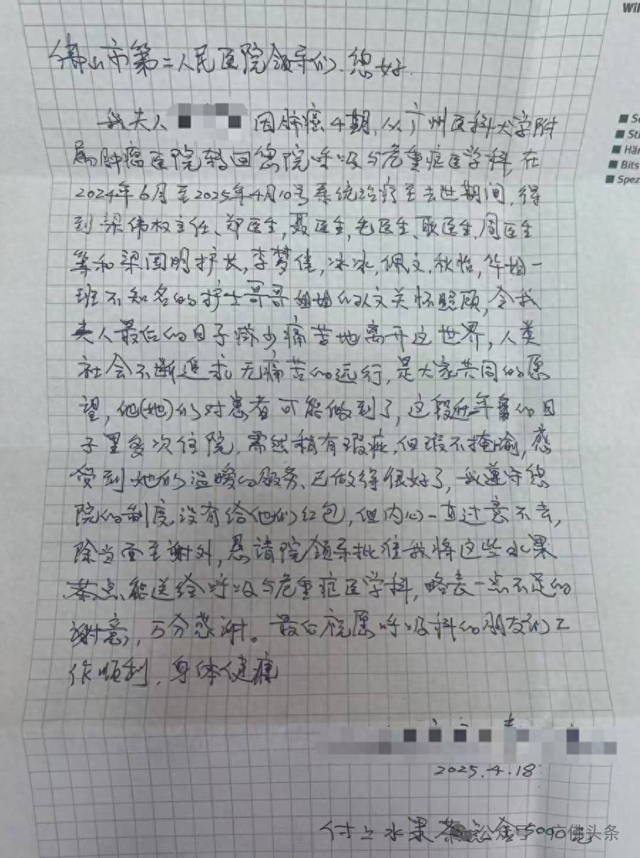 佛山市第二人民医院领导们、您好
我夫人 因肺癌4期,从广州医科大学附
属肿瘤医院转回您院呼吸与危重症医学科,在
2024年6月至2025年4月10号系统治疗至去世期间,得
到梁伟权主任、郑医生,聂医生,毛医生,耿医生,周医生
等和梁国明护长,李梦佳,冰冰,佩文,秋怡,华姐一
班不知名的护士哥哥姐姐们的人文关怀照顾,令我
夫人最后的日子减少痛苦地离开这世界,人类
社会不断追求无痛苦的远行,是大家共同的愿
望,他(她)们对患者可能做到了,这段近年多的日
子里多次住院,虽然稍有瑕疵,但瑕不掩瑜,感
受到她们的温暖的服务、已做得很好了,我遵守您
院的制度,没有给他们红包,但内心一直过意不去,
除当面至谢外,恳请院领导批准我将这些水果
茶点能送给呼吸与危重症医学科,略表一点不足的
谢意,万分感谢。最后祝愿呼吸科的朋友们工
作顺利,身体健康
2025.4.18
付上水果 500 佛头条
Wil
Se
St
Här
Bits
Spez